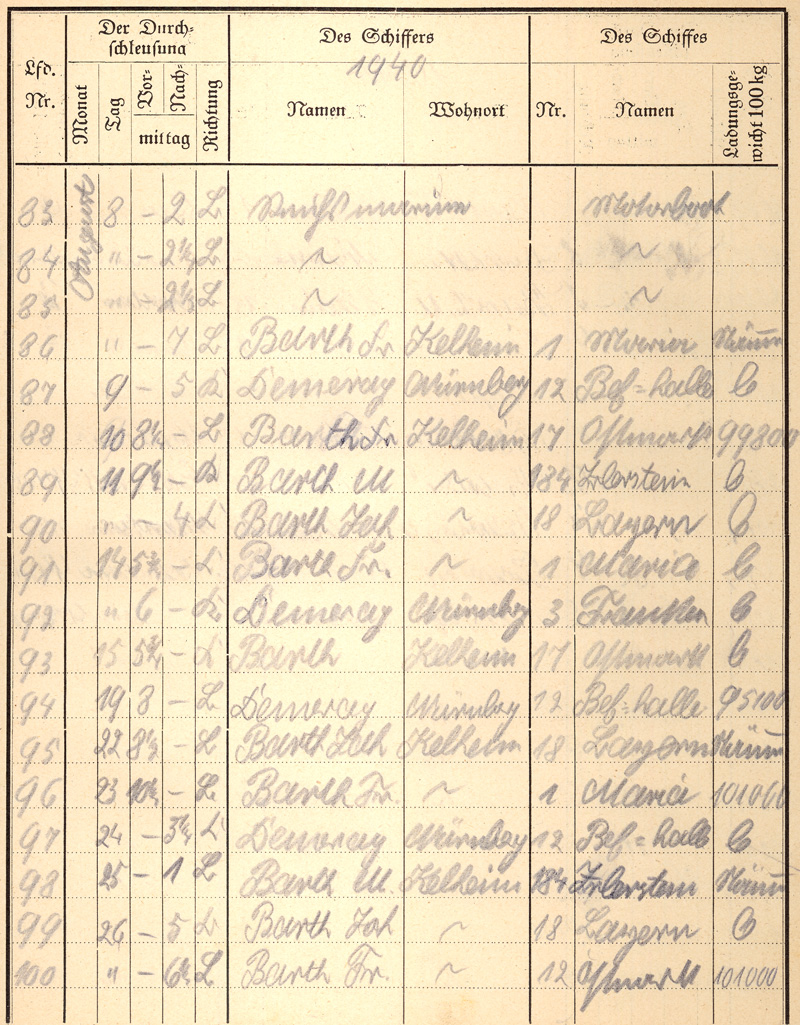 Lfd. Nr.
Der Durch-
schleusung
Monat
Tag
Vor-
Nach-
mittag
Richtung
Des Schiffers
1940
Namen
Wohnort
Des Schiffes
Nr.
Namen
Ladungsge-
wicht 100 kg
83 August 8 – 2 L Reichsmarine Motorboot
84 " – 2½ L ~ ~
85 – 2½ L ~ ~
86 " – 7 L Barth Fr Kelheim 1 Maria
87 9 – 5 K Demeray Nürnberg 12 Bef=halle
88 10 8½ – L Barth Fr Kelheim 17 Ostmark 99800
89 11 9½ – K Barth M ~ 184
90 – 4 L Barth Joh ~ 18 Bayern
91 14 – L Barth Fr. ~ 1 Maria
92 " 6 – K Demeray Nürnberg 3 Franken
93 15 – L Barth Kelheim 17 Ostmark
94 19 8 – L Demeray Nürnberg 12 Bef=halle 95100
95 22 8½ – L Barth Joh Kelheim 18 Bayern
96 23 10½ – L Barth Fr. ~ 1 Maria
97 24 – 3½ L Demeray Nürnberg 12 Bef=halle
98 25 – 1 L Barth M. Kelheim 184
99 26 – 5 L Barth Joh ~ 18 Bayern
100 " – 6½ L Barth Fr. ~ 12 Ostmark 101000